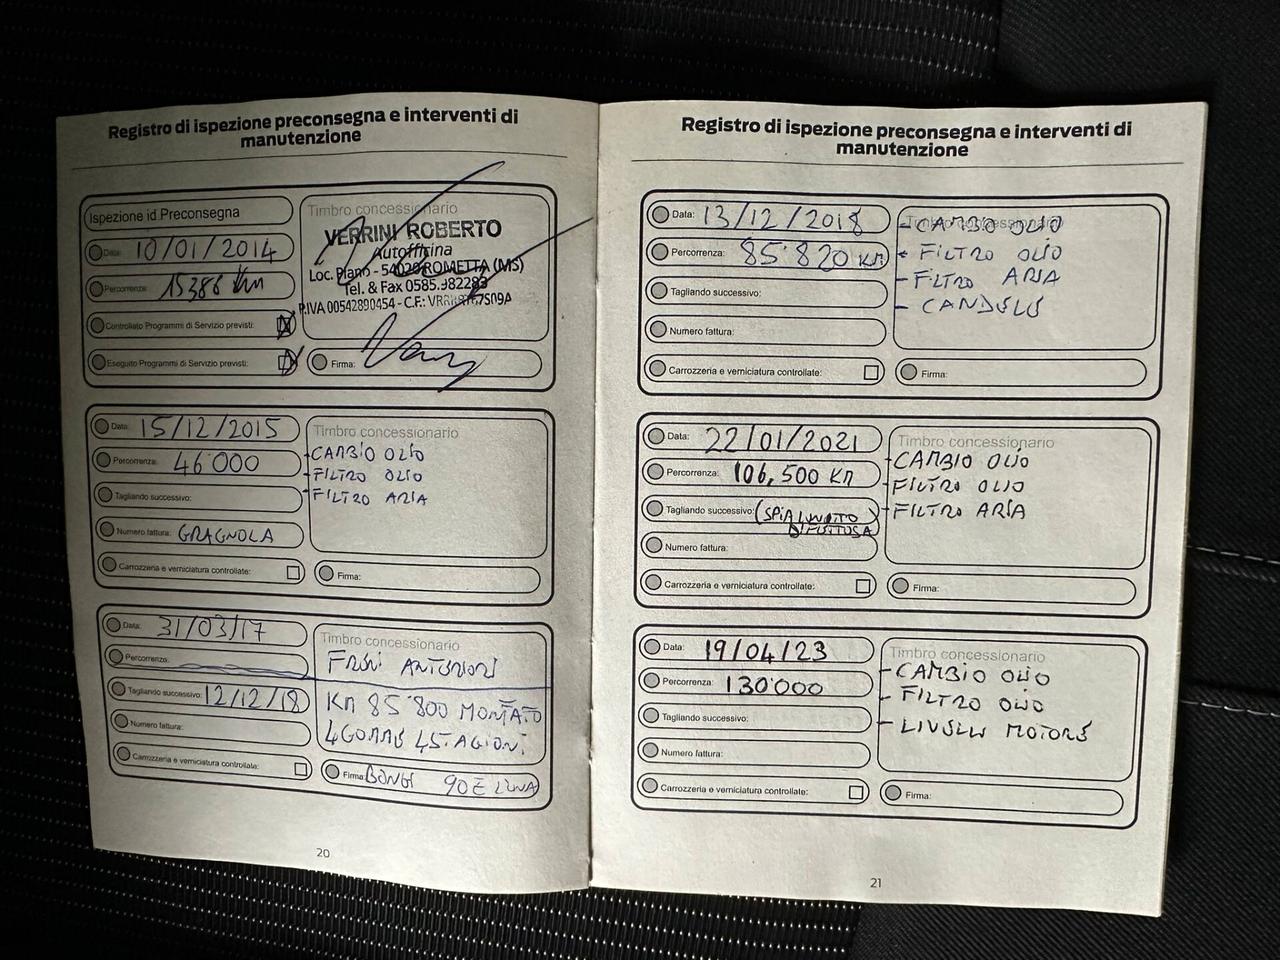 Registro di ispezione preconsegna e interventi di
manutenzione
Ispezione id Preconsegna
Data: 10/01/2014
Percorrenza: 15386 Km
Controllato Programmi di Servizio previsti:
Eseguito Programmi di Servizio previsti:
Timbro concessionario
VERRINI ROBERTO
Autofficina
Loc. Piano - 54020 ROMETTA (MS)
Tel. & Fax 0585.982283
P.IVA 00542890454 - C.F.:
Firma:
Data: 15/12/2015
Percorrenza: 46'000
Tagliando successivo:
Numero fattura: GRAGNOLA
Carrozzeria e verniciatura controllate:
Timbro concessionario
-CAMBIO OLIO
-FILTRO OLIO
-FILTRO ARIA
Firma:
Data: 31/03/17
Percorrenza:
Tagliando successivo: 12/12/18
Numero fattura:
Carrozzeria e verniciatura controllate:
Timbro concessionario
FRENI ANTERIORI
KM 85'800 MONTATO
4 GOMME 4 STAGIONI
Firma:
20
Registro di ispezione preconsegna e interventi di
manutenzione
Data: 13/12/2018
Percorrenza: 85'820 KM
Tagliando successivo:
Numero fattura:
Carrozzeria e verniciatura controllate:
Timbro concessionario
- CAMBIO OLIO
- FILTRO OLIO
- FILTRO ARIA
- CANDELE
Firma:
Data: 22/01/2021
Percorrenza: 106,500 KM
Tagliando successivo:
Numero fattura:
Carrozzeria e verniciatura controllate:
Timbro concessionario
- CAMBIO OLIO
- FILTRO OLIO
- FILTRO ARIA
Firma:
Data: 19/04/23
Percorrenza: 130'000
Tagliando successivo:
Numero fattura:
Carrozzeria e verniciatura controllate:
Timbro concessionario
- CAMBIO OLIO
- FILTRO OLIO
- LIVELLI MOTORE
Firma:
21